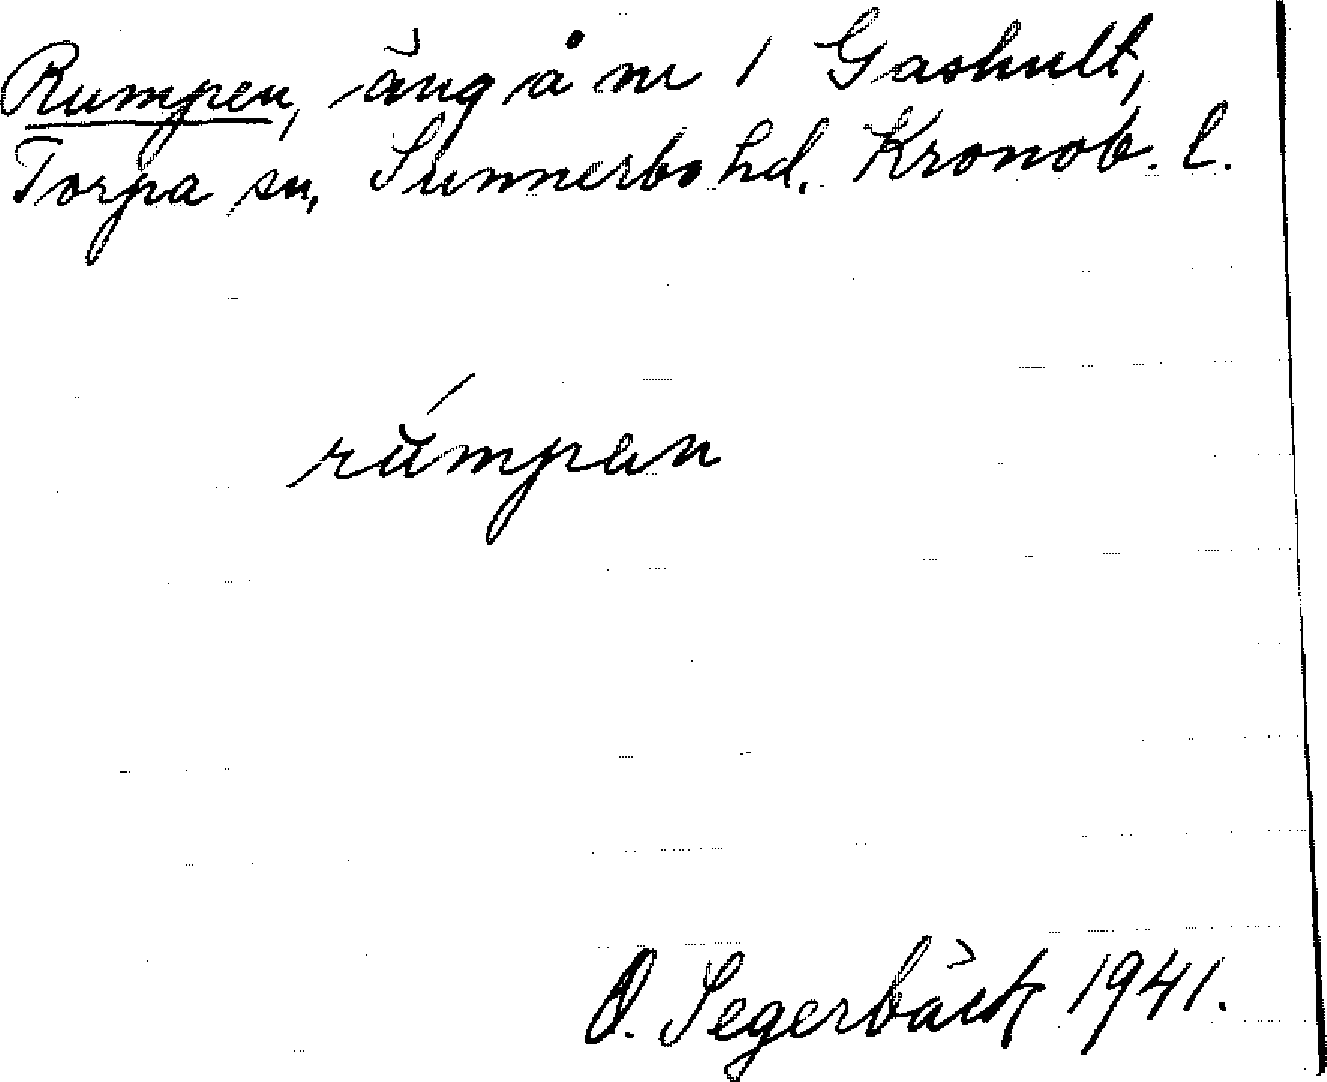 Rumpen, äng å nr 1 Gashult,
Torpa sn, Sunnerbo hd. Kronob. l.
rúmpen
O. Segerbäck 1941.